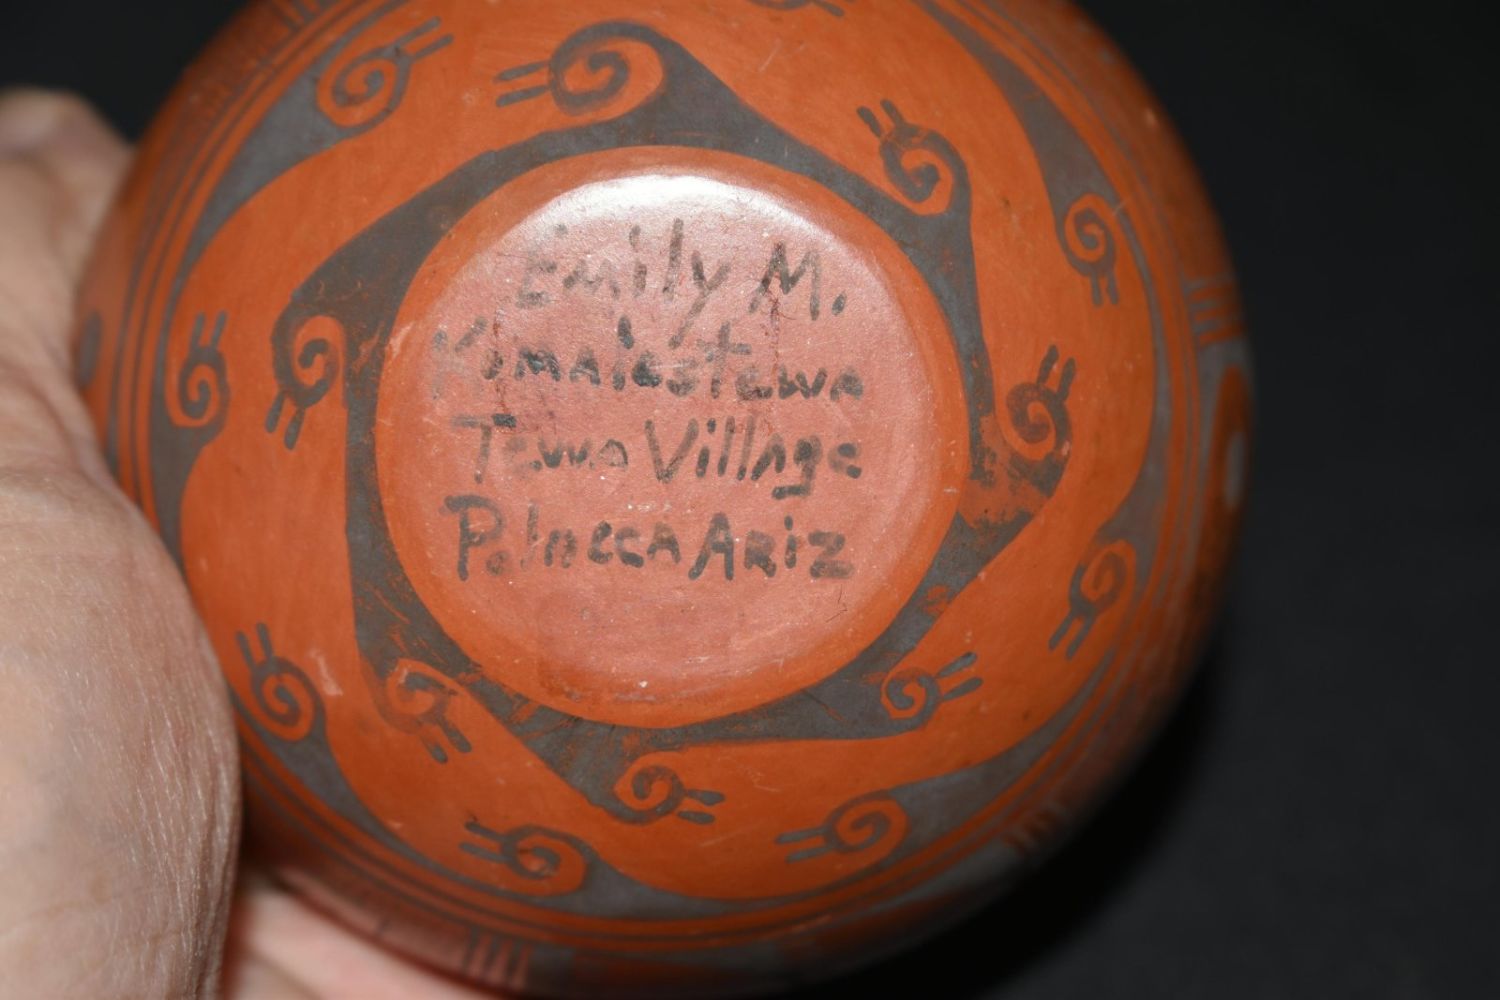 Emily M.
Komalestewa
Tewa Village
Polacca Ariz